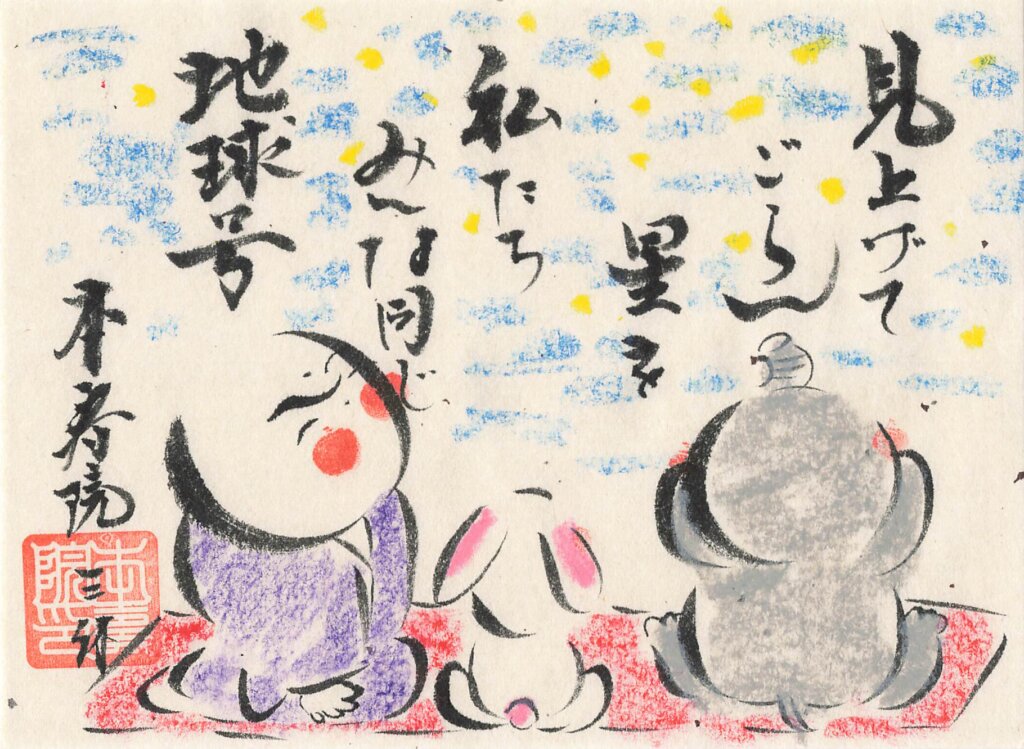 見上げて
ごらん
星を
私たち
み〜んな同じ
地球号
本寿院
三浄
本寿院